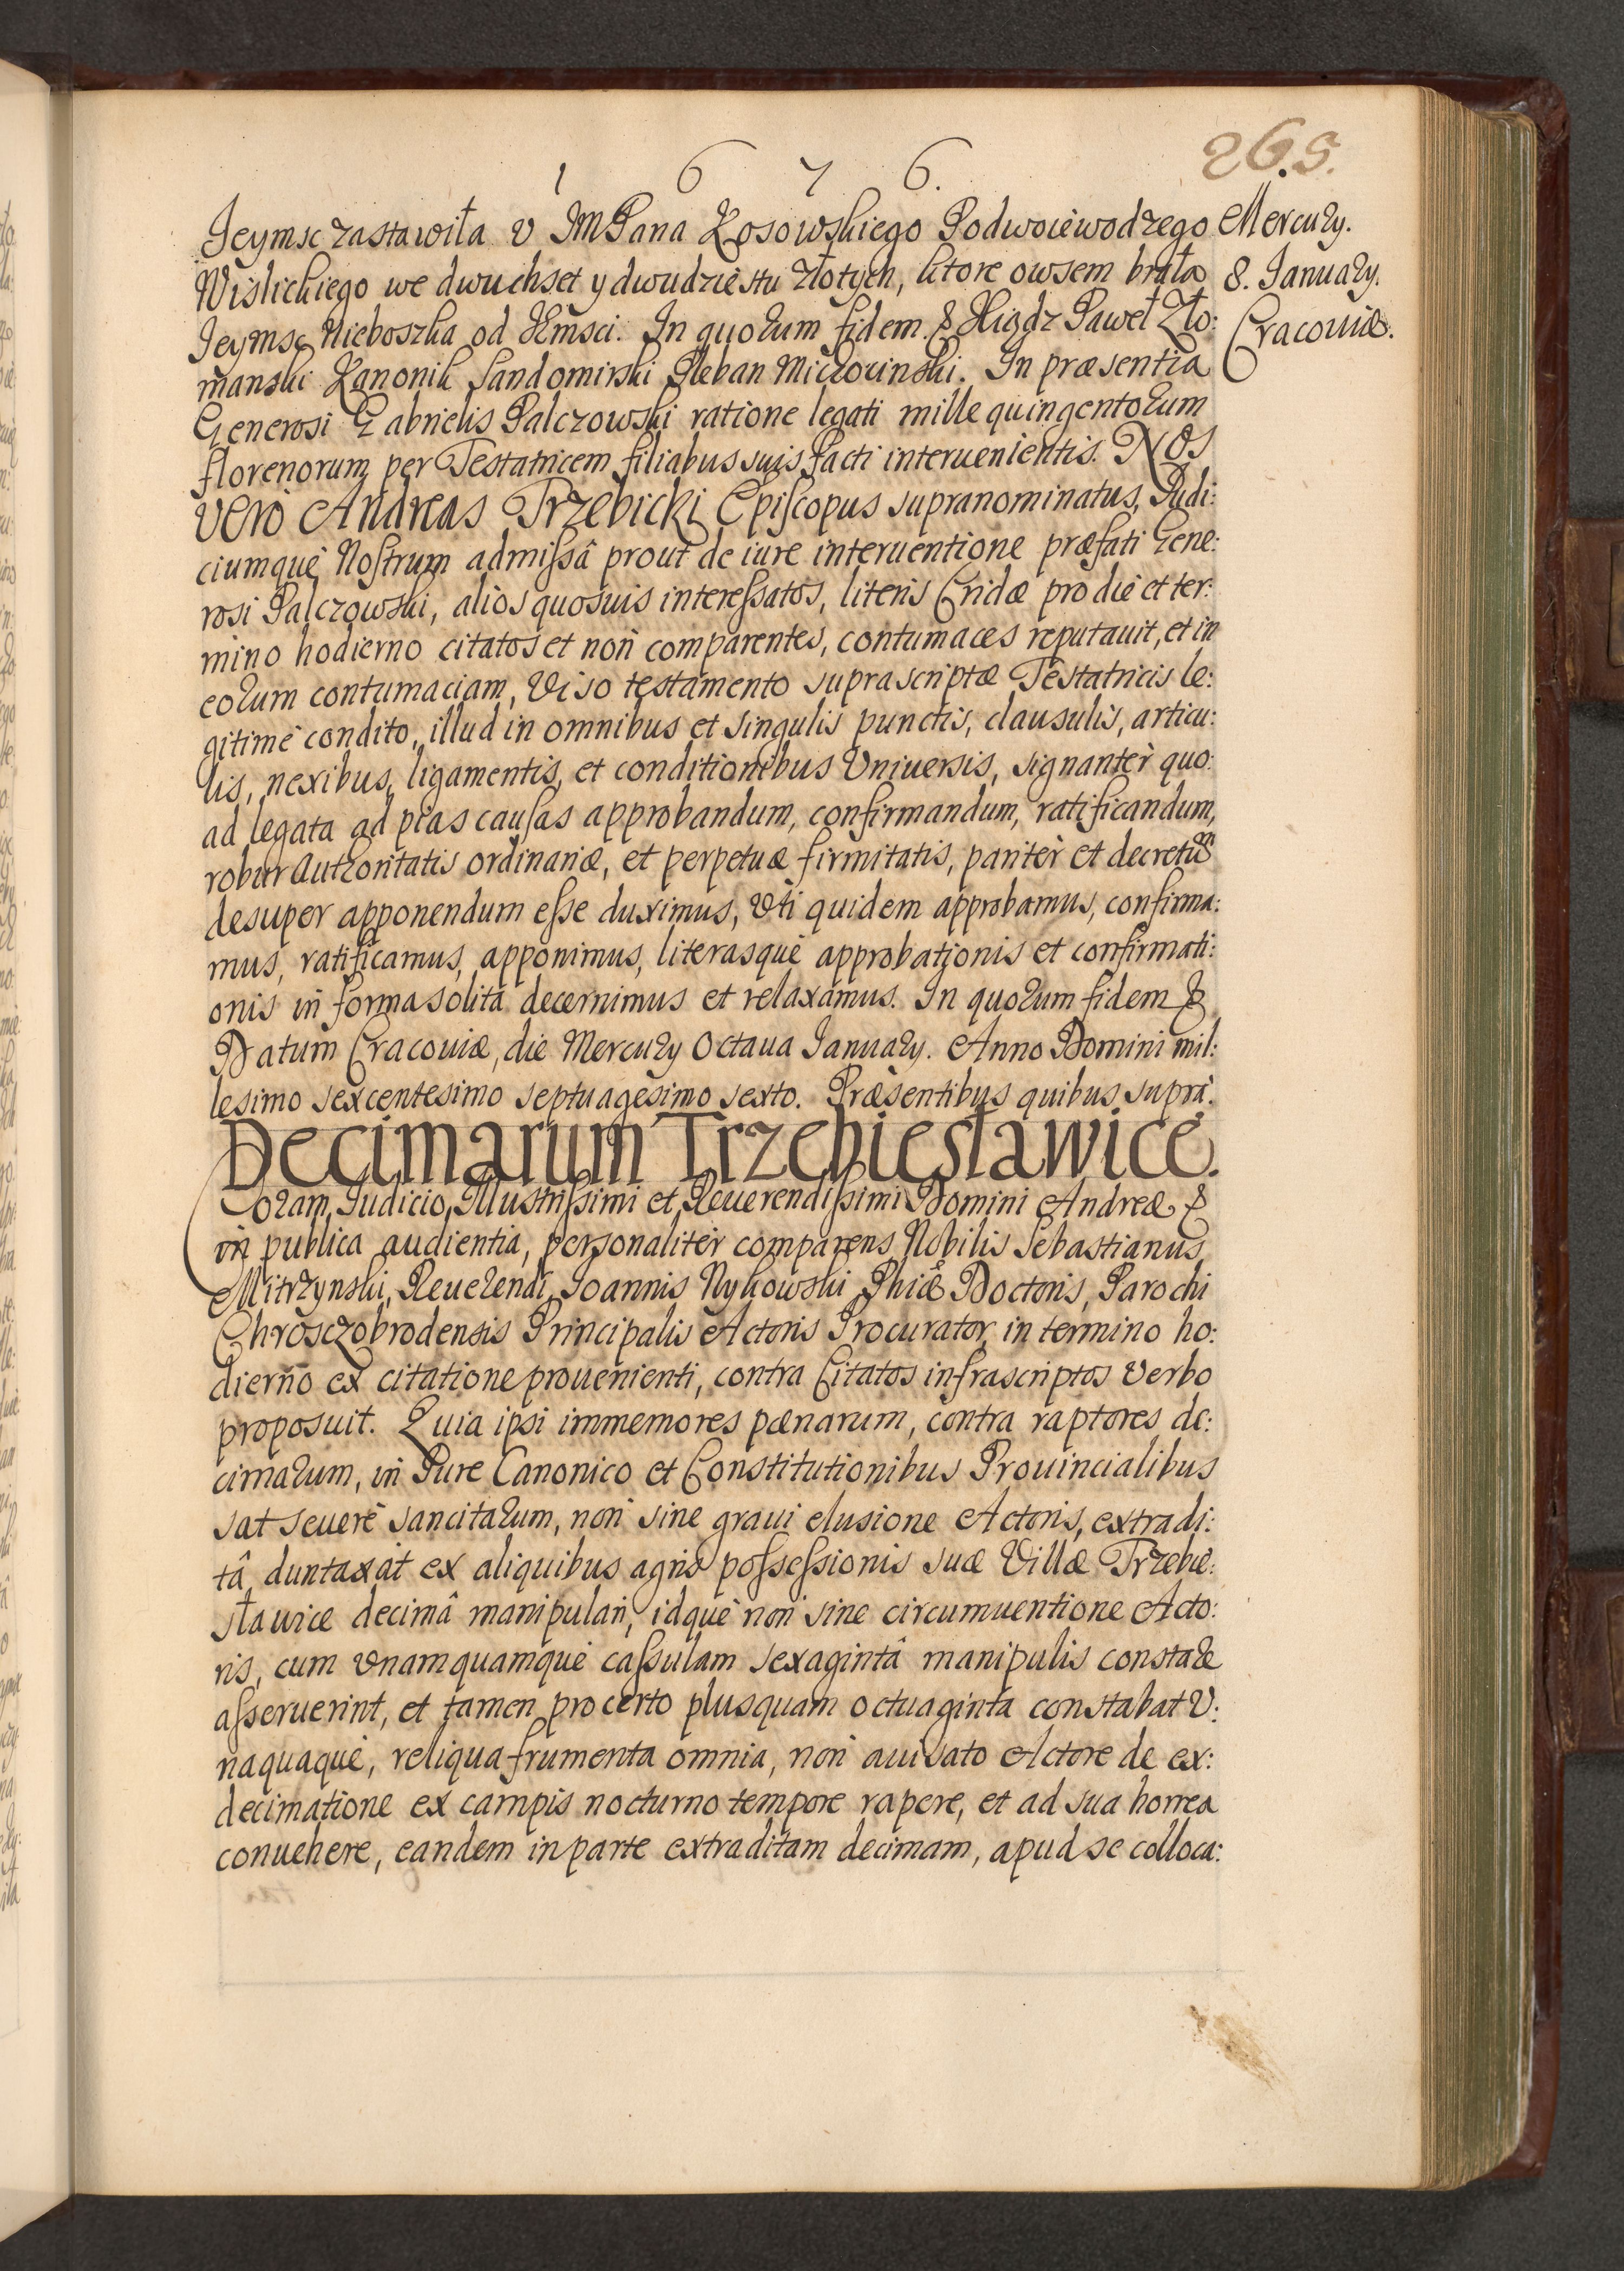 1 6 7 6.
265.
Jeymsc zastawiła v JMPana Kosowskiego Podwoiewodzego
Wislickiego we dwuchset y dwudziestu złotych, ktore owsem brała
Jeymsc Nieboszka od JEmsci. In quorum fidem & Xiądz Paweł Zło:
manski Kanonik Sandomirski Pleban Miczocinski. In præsentia
Generosi Gabrielis Palczowski ratione legati mille quingentorum
florenorum per Testatricem filiabus suis facti interuenientis. Nos
vero Andreas Trzebicki Episcopus supranominatus, Iudi:
ciumque Nostrum admissâ prout de iure interuentione præfati Gene:
rosi Palczowski, alios quosuis interessatos, literis Cridæ pro die et ter:
mino hodierno citatos et non comparentes, contumaces reputauit, et in
eorum contumaciam, Viso testamento suprascriptæ Testatricis le:
gitime condito, illud in omnibus et singulis punctis, clausulis, articu:
lis, nexibus, ligamentis, et conditionibus Vniuersis, signanter quo
ad legata ad pias causas approbandum, confirmandum, ratificandum,
robur Authoritatis ordinariæ, et perpetuæ firmitatis, pariter et decretum
desuper apponendum esse duximus, Vti quidem approbamus, confirma:
mus, ratificamus, apponimus, literasque approbationis et confirmati:
onis in forma solita decernimus et relaxamus. In quorum fidem &
Datum Cracouiæ, die Mercury Octaua January. Anno Domini mil:
lesimo sexcentesimo septuagesimo sexto. Præsentibus quibus supra.
Mercury.
8. January.
Cracouiæ.
Decimarum Trzebiesławice.
Coram Iudicio Illustrissimi et Reuerendissimi Domini Andreæ &
in publica audientia, personaliter comparens Nobilis Sebastianus
Mitrzynski, Reuerendi Ioannis Nykowski Phiæ Doctoris, Parochi
Chrosczobrodensis Principalis Actoris Procurator, in termino ho:
dierno ex citatione prouenienti, contra Citatos infrascriptos Verbo
proposuit. Quia ipsi immemores pænarum, contra raptores de:
cimarum, in Iure Canonico et Constitutionibus Prouincialibus
sat seuere sancitarum, non sine graui elusione Actoris, extradi:
tâ duntaxat ex aliquibus agris possessionis suæ Villæ Trzebie:
sławice decimâ manipulari, idque non sine circumuentione Acto:
ris, cum vnamquamque cassulam sexagintâ manipulis constare
asseruerint, et tamen pro certo plusquam octuaginta constabat V:
naquaque, reliqua frumenta omnia, non auisato Actore de ex:
decimatione ex campis nocturno tempore rapere, et ad sua horrea
conuehere, eandem in parte extraditam decimam, apud se colloca: